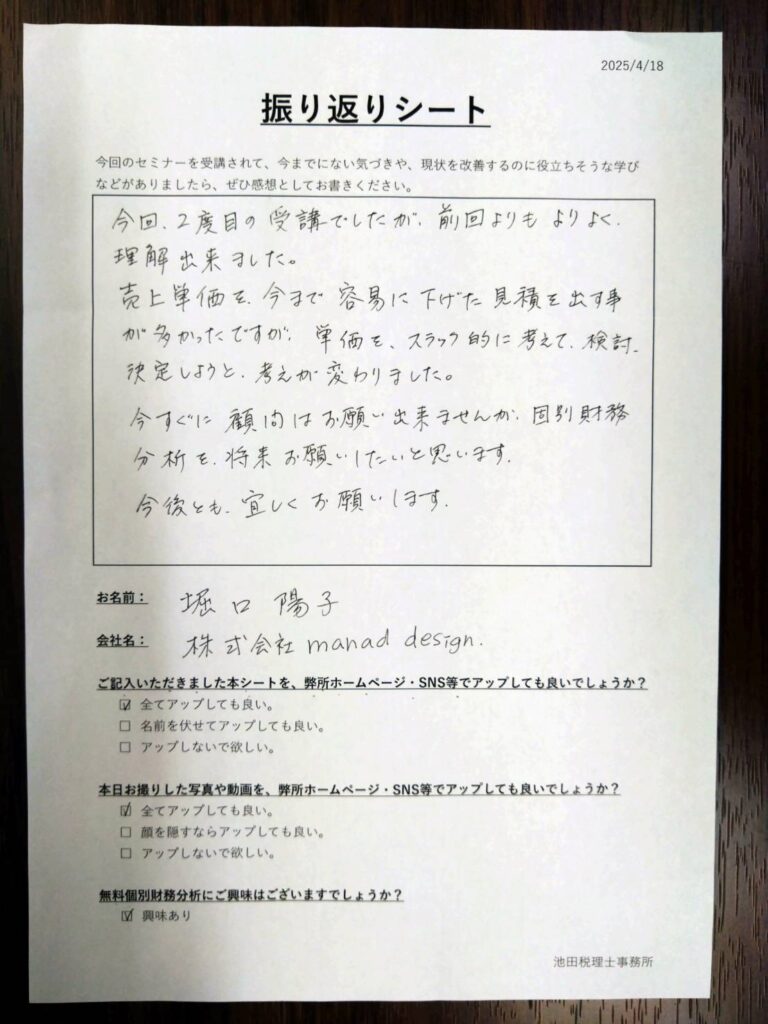 2025/4/18
振り返りシート
今回のセミナーを受講されて、今までにない気づきや、現状を改善するのに役立ちそうな学び
などがありましたら、ぜひ感想としてお書きください。
今回、2度目の受講でしたが、前回よりもよりよく、
理解出来ました。
売上単価を、今まで容易に下げた見積を出す事
が多かったですが、単価を、スラック的に考えて、検討、
決定しようと、考えが変わりました。
今すぐに顧問はお願い出来ませんが、固別財務
分析を、将来お願いしたいと思います。
今後とも、宜しくお願いします。
お名前: 堀口陽子
会社名: 株式会社manad design.
ご記入いただきました本シートを、弊所ホームページ・SNS等でアップしても良いでしょうか?
☑ 全てアップしても良い。
☐ 名前を伏せてアップしても良い。
☐ アップしないで欲しい。
本日お撮りした写真や動画を、弊所ホームページ・SNS等でアップしても良いでしょうか?
☑ 全てアップしても良い。
☐ 顔を隠すならアップしても良い。
☐ アップしないで欲しい。
無料個別財務分析にご興味はございますでしょうか?
☑ 興味あり
池田税理士事務所